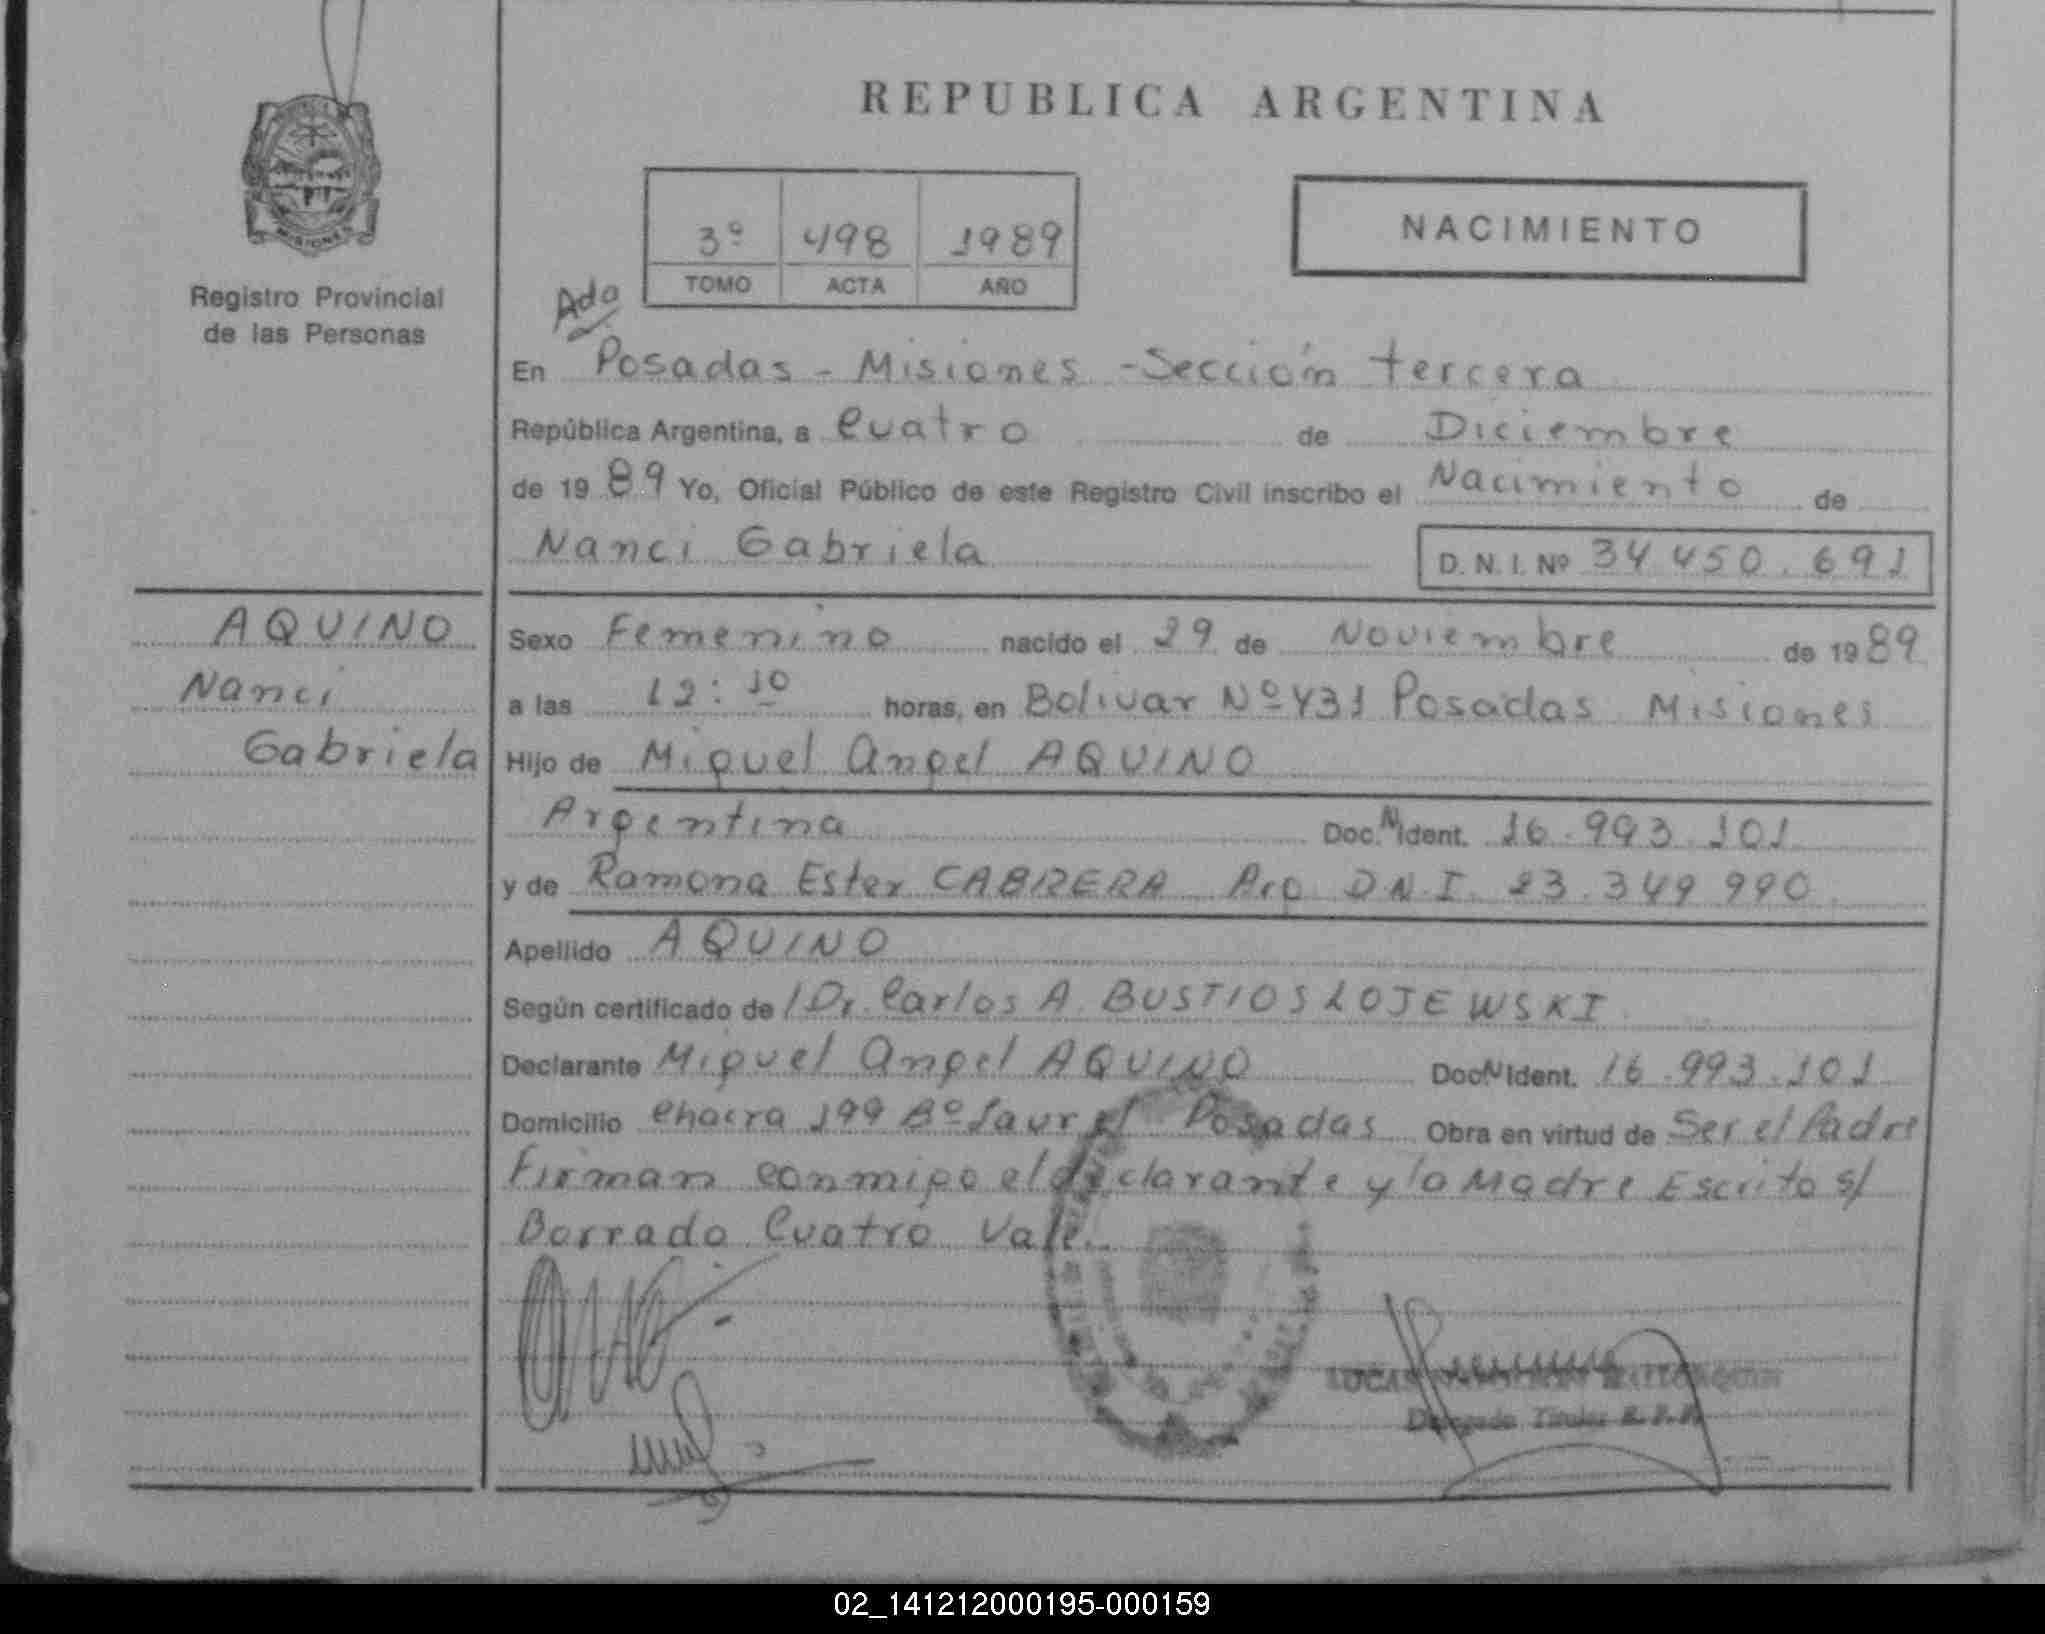 REPUBLICA ARGENTINA
MISIONES
Registro Provincial
de las Personas
3º 498 1989
TOMO ACTA AÑO
NACIMIENTO
Ada
En Posadas - Misiones - Sección tercera
República Argentina, a Cuatro de Diciembre
de 1989 Yo, Oficial Público de este Registro Civil inscribo el Nacimiento de
Nanci Gabriela D. N. I. Nº 34 450.691
AQUINO
Nanci
Gabriela
Sexo Femenino nacido el 29 de Noviembre de 1989
a las 12:10 horas, en Bolivar Nº 431 Posadas Misiones
Hijo de Miguel Angel AQUINO
Argentina Doc. N Ident. 16.993.101
y de Ramona Ester CABRERA Arg D.N.I. 23.349 990
Apellido AQUINO
Según certificado de / Dr. Carlos A. BUSTIOS LOJEWSKI
Declarante Miguel Angel AQUINO Doc N Ident. 16.993.101
Domicilio Chacra 199 Bº Laurel Posadas Obra en virtud de Ser el Padre
Firman conmigo el declarante y la Madre Escrito s/
Borrado Cuatro Vale.
LUCAS
Delegado Titular R.P.P.
02_141212000195-000159